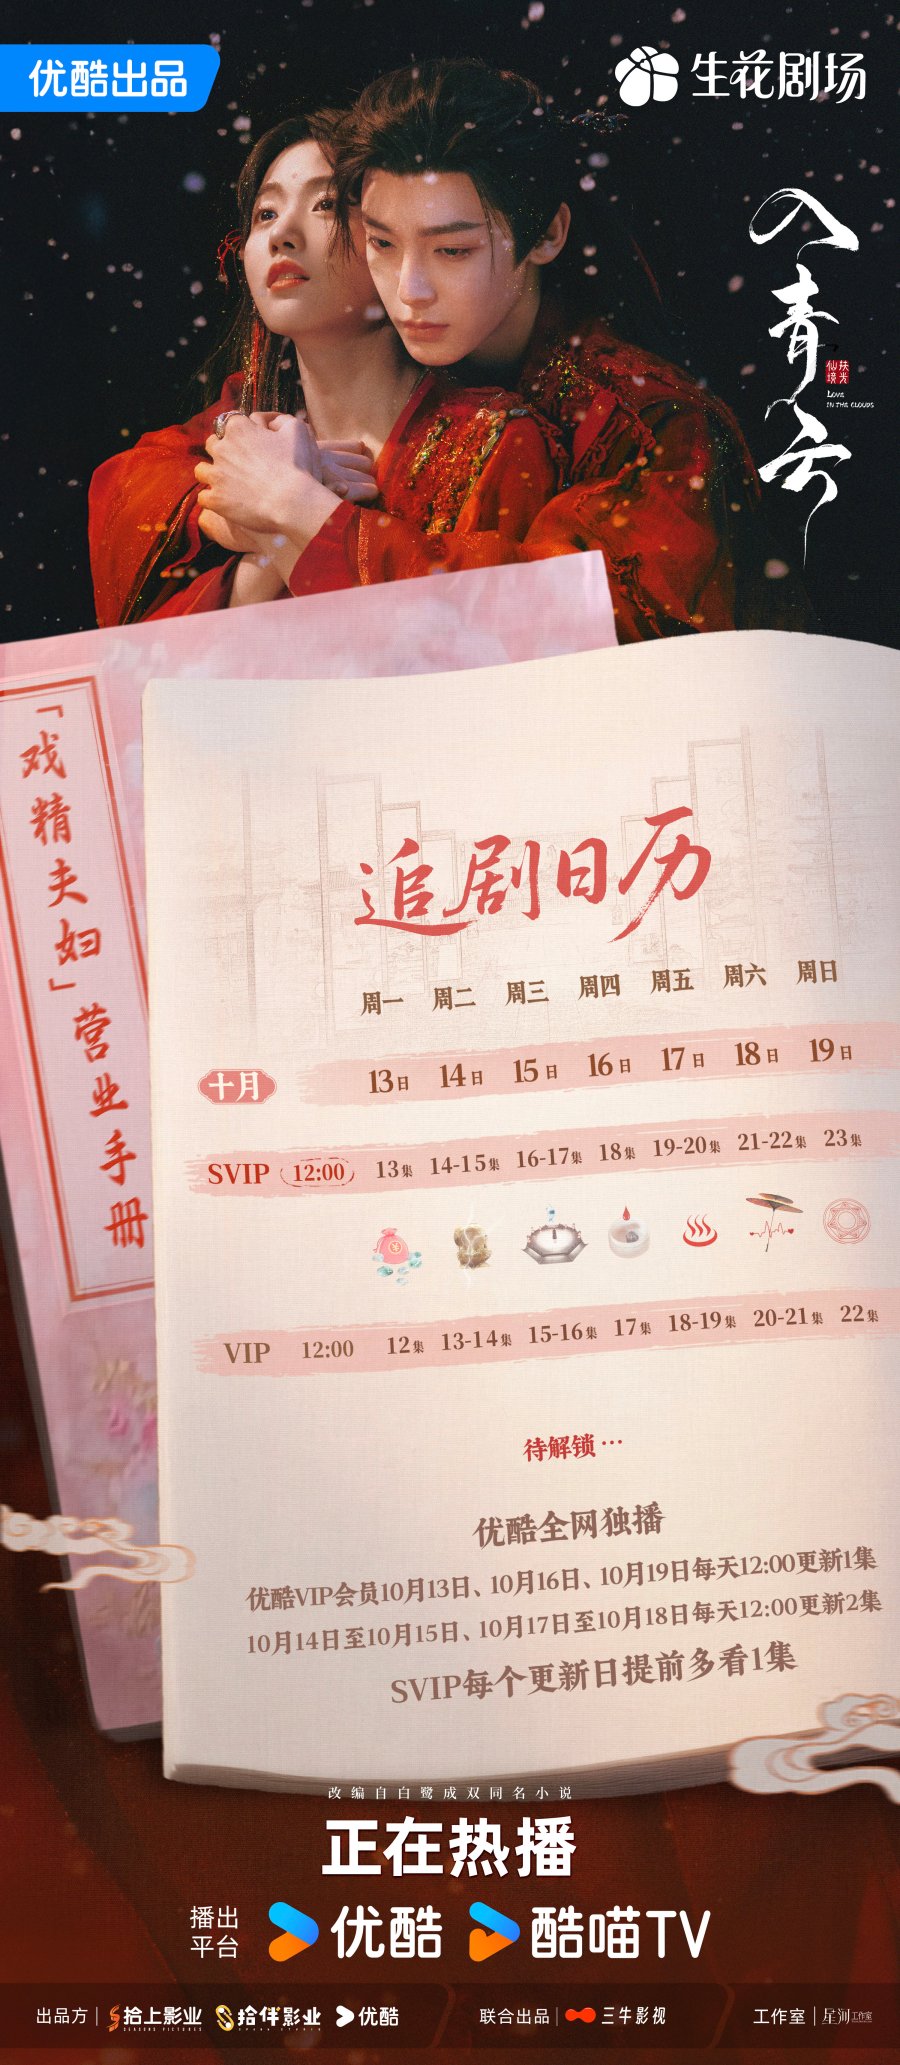 优酷出品
生花剧场
入青云
扶光
仙境
LOVE
IN THE CLOUDS
「戏精夫妇」营业手册
追剧日历
周一 周二 周三 周四 周五 周六 周日
十月 13日 14日 15日 16日 17日 18日 19日
SVIP 12:00 13集 14-15集 16-17集 18集 19-20集 21-22集 23集
VIP 12:00 12集 13-14集 15-16集 17集 18-19集 20-21集 22集
待解锁…
优酷全网独播
优酷VIP会员10月13日、10月16日、10月19日每天12:00更新1集
10月14日至10月15日、10月17日至10月18日每天12:00更新2集
SVIP每个更新日提前多看1集
改编自白鹭成双同名小说
正在热播
播出
平台
优酷 酷喵TV
出品方 | 拾上影业 拾伴影业 优酷 联合出品 | 三牛影视 工作室 | 星河工作室